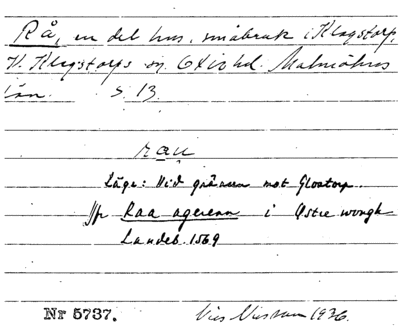 Rå, en del hus, småbruk i Klagstorp,
V. Klagstorps sn. Oxie hd. Malmöhus
län. S. 13.
rau
Läge: Vid gränsen mot Glostorp.
Jfr Raa agerenn i Østre wongh
Landeb. 1569
Nr 5737.
1936.